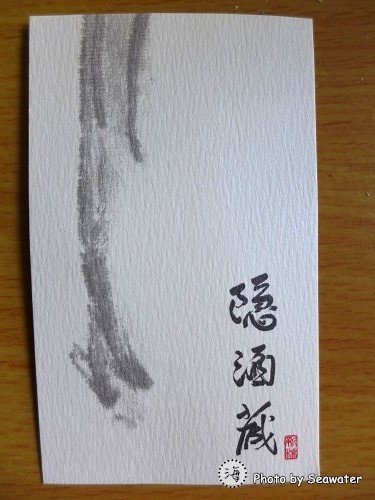 隱酒藏
海
Photo by Seawater